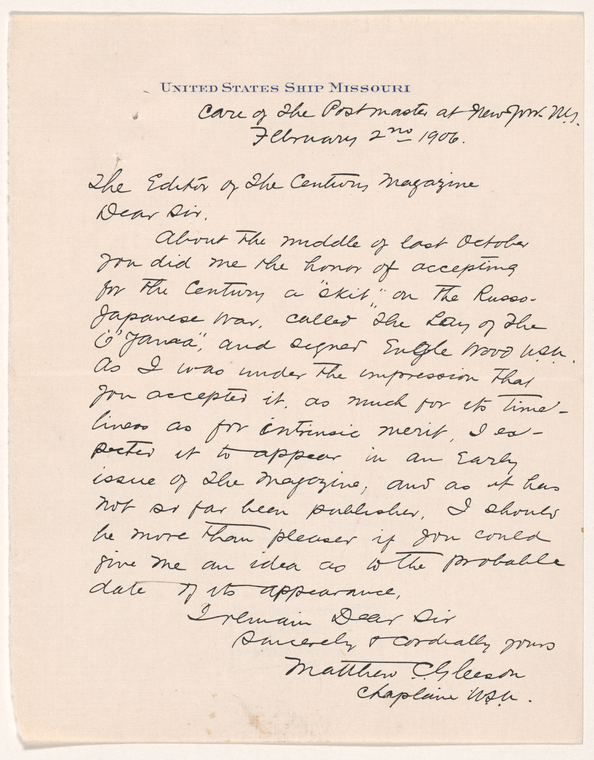 UNITED STATES SHIP MISSOURI
Care of The Postmaster at New York. N.Y.
February 2nd 1906.
The Editor of The Century Magazine
Dear Sir.
About the middle of last October
you did me the honor of accepting
for the Century a "skit", on the Russo-
Japanese War, called The Lay of The
"Janaa", and signed Engle Wood U.S.N.
As I was under the impression that
you accepted it, as much for its time-
liness as for intrinsic merit, I ex-
pected it to appear in an Early
issue of The Magazine; and as it has
not so far been published, I should
be more than pleased if you could
give me an idea as to the probable
date of its appearance.
I remain Dear Sir
Sincerely & cordially yours
Matthew C. Gleeson
Chaplain U.S.N.